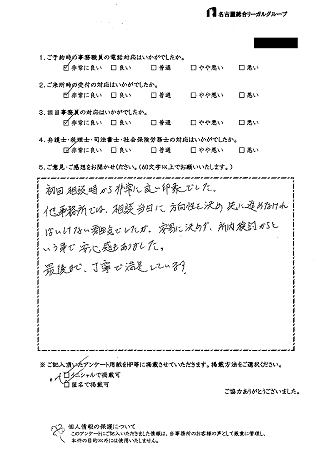 名古屋総合リーガルグループ
1. ご予約時の事務職員の電話対応はいかがでしたか。
☑非常に良い □良い □普通 □やや悪い □悪い
2. ご来所時の受付の対応はいかがでしたか。
☑非常に良い □良い □普通 □やや悪い □悪い
3. 担当事務員の対応はいかがでしたか。
☑非常に良い □良い □普通 □やや悪い □悪い
4. 弁護士・税理士・司法書士・社会保険労務士の対応はいかがでしたか。
☑非常に良い □良い □普通 □やや悪い □悪い
5. ご意見・ご感想をお聞かせください。(60文字以上でお願いいたします。)
初回相談時から非常に良い印象でした。
他事務所では、相談当日に方向性を決め、先に進めなければ
いけない雰囲気でしたが、容易に決めず、所内検討からと
いう事で安心感もありました。
最後まで、丁寧で満足しています。
※ ご記入頂いたアンケート用紙をHP等に掲載させていただきます。掲載方法をご選択ください。
□イニシャルで掲載可
□匿名で掲載可
ご協力ありがとうございました。
個人情報の保護について
このアンケートにご記入いただきました情報は、当事務所のお客様の声として厳重に管理し、
本件の目的以外には使用いたしません。